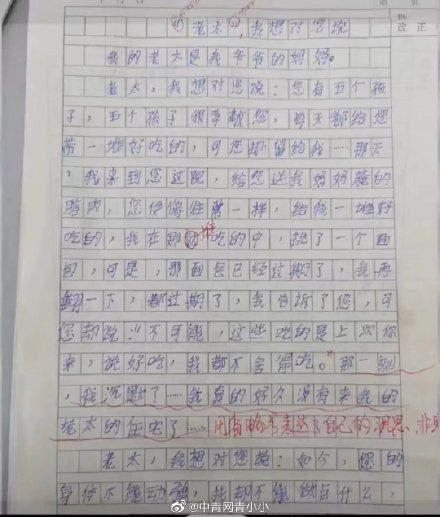 老太，我想对您说
我的老太是我爷爷的妈妈。
老太，我想对您说：您有五个孩
子，五个孩子很孝敬您，每天都给您
带一堆好吃的，可您都留给我……那天
，我来到您这院，给您送我妈妈腌的
腊肉，您便像往常一样，给我一堆好
吃的，我在那堆吃的中，挑了一个面
包，可是，那面包已经过期了，我再
翻一下，都过期了，我告诉了您，可
您却说："不可能，这些吃的是上次你
来，说好吃，我都不舍得吃。"那一刻
，我沉默了……我真的好久没有来我的
老太的住宅了……用省略号表达了自己的
老太，我想对您说：如今，您的
身体不能动弹，我却不能做点什么，
改正
@中青网青小小